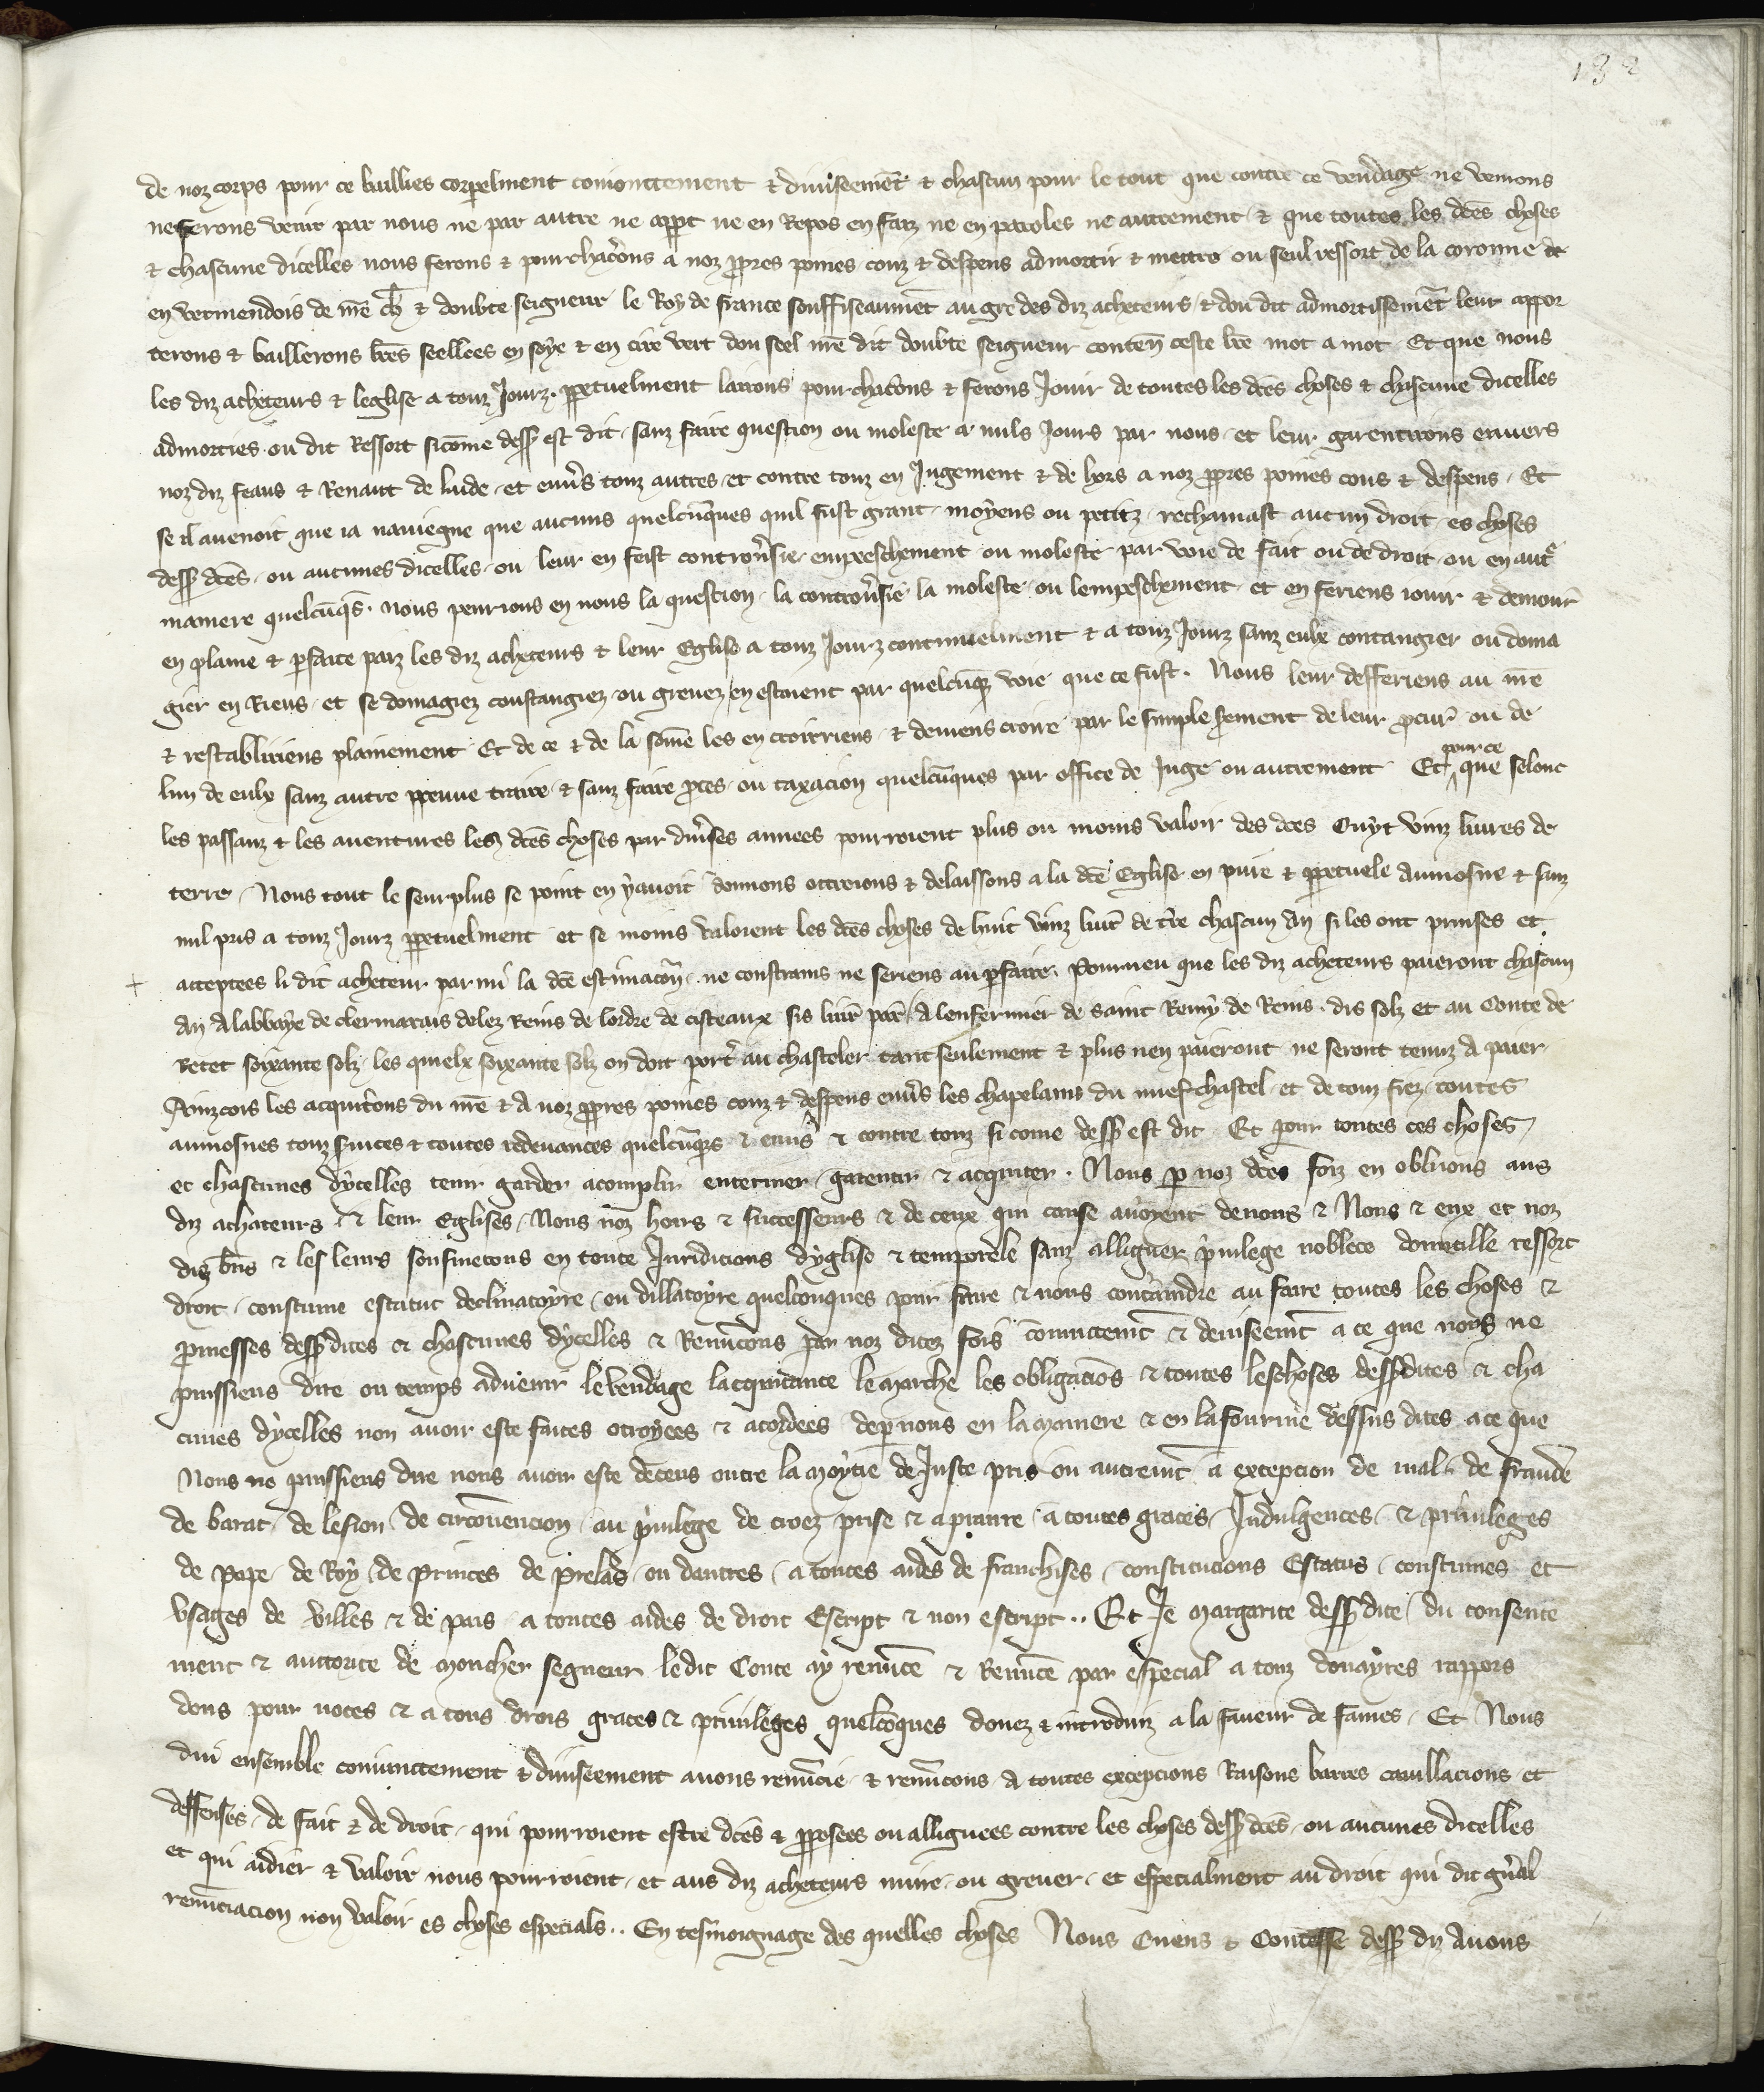 132
de noz corps pour ce baillies corpelment coniointement & diuiseemēt & chascun pour le tout que contre ce vendage ne venrons
ne ferons venir par nous ne par autre ne appt ne en Repos en faiz ne en paroles ne autrement & que toutes les dc̄es choses
& chascune dicelles nous ferons & pourchac̄ons a noz ppres poines couz & despens admortir & mettre ou seul ressort de la coronne de
en vermendois de mr̄e ch̄r & doubte seigneur le Roy de france souffiseaumēt au gre des diz acheteurs & dou dit admortissemēt leur appor
terons & baillerons lr̄es seellees en soye & en cire vert dou seel mr̄e dit doubte seigneur conten̄ ceste lr̄e mot a mot Et que nous
les diz acheteurs & leglise a touz Jourz ppetuelment lairons pourchac̄ons & ferons Jouir de toutes les dc̄es choses & chascune dicelles
admorties ou dit Ressort sicōme dess9 est dit sanz faire question ou moleste a nuls Jours par nous et leur garentirons enuers
noz diz feaus & Renaut de lude et enūs touz autres et contre touz en Jugement & de hors a noz ppres poines cous & despens Et
se il auenoit que ia nauiegne que aucuns quelcūques quil fust grant moyens ou petitz reclamast aucun droit es choses
dess9 dc̄es ou aucunes dicelles ou leur en feist controūsie empeschement ou moleste par voie de fait ou de droit ou en autr̄
maniere quelcūqs nous penrions en nous la question la controūsie la moleste ou lempeschement et en feriens iouir & demour̄
en plaine & pfaite paiz les diz acheteurs & leur Eglise a touz Jourz continuelment & a touz Jourz sanz eulx contangier ou doma
gier en Riens et se domagiez coustangiez ou greuez en estoient par quelcūq3 voie que ce fust Nous leur defferiens au mr̄e
& restabliriens plainement Et de ce & de la somē les en croirriens & deuiens croire par le simple serement de leur pcur̄ ou de
lun de eulx sanz autre preuue traire & sanz faire pces ou taxacion quelcūques par office de Juge ou autrement Et pour ce que selonc
les passanz & les auentures les dc̄es choses par diūses annees pourroient plus ou moins valoir des dc̄es Ouyt vinz liures de
terre Nous tout le seurplus se point en yauoit donnons ottroions & delaissons a la dc̄e Eglise en pure & ppetuele aumosne & sanz
nul pris a touz Jourz ppetuelment et se moins valoient les dc̄es choses de huit vinz liur̄ de tr̄e chascun an si les ont prinses et
acceptees li dit acheteur par mi la dc̄e estimacōn ne constrains ne seriens au pfaire Pourueu que les diz acheteurs paieront chascun
an a labbaye de clermarais delez Reins de lordre de cisteaux sis liur̄ par̄ a lenfermier de saint Remy de Reins dis solz et au Conte de
Retet soixante solz les quielx soixante solz on doit port̄ au chasteler tant seulement & plus nen paieront ne seront tenuz a paier
Ainzcois les acquitōns du mr̄e & a noz ppres poines couz & despens enūs les chapelains du nuef chastel et de touz fiez toutes
aumosnes touz suices & toutes redeuances quelcūq3s & enūs & contre touz si come dess9 est dit Et pour toutes ces choses
et chascunes dycelles tenir garder acomplir enteriner garentir & acquiter Nous p noz dc̄es foiz en obluions aus
diz achateurs & leur Eglises Nous noz hoirs & successeurs & de ceux qui cause auoyent denous & Nous & eux et noz
diz bn̄s & les leurs sousmetons en toute Juridicions dyglise & temporele sanz alliguer puilege noblece domicille ressort
droit constume estatut declinatoyre ou dillatoyre quelconques pour faire & nous contraindre au faire toutes les choses &
pmesses dess9 dites & chascunes dycelles & Renūcons par noz dictez fois cōiunctemt̄ & deuiseemt̄ a ce que nous ne
puissiens dire ou temps aduenir le vendage lacquitance le marche les obligaciōs & toutes les choses dess9 dites & cha
cunes dycelles non auoir este faites otroyees & acordees dep nous en la maniere & en la fourme dessus dites a ce que
Nous ne puissiens dire nous auoir este deceus outre la moytie de Juste pris ou autremt̄ a excepcion de mal de fraude
de barat de lesion de circōuencion au puilege de croez prise & a pranre a toutes graces Jndulgences & priuileges
de Pape de Roy de princes de prelas ou dautres a toutes aides de franchises constitucions Estatus constumes et
vsages de villes & de pais a toutes aides de droit Escript & non escript Et Je Margarite dess9 dite du consente
ment & auctorite de moncher segneur ledit Conte ay renūcē & Renūcē par especial a touz douayres rappors
dons pour noces & a tous drois graces & priuileges quelcōques donez & introduiz a la faueur de fames Et Nous
dui ensemble coniunctement & diuiseement auons renūcie & renūcons a toutes excepcions Raisons barres cauillacions et
deffenses de fait & de droit qui pourroient estre dc̄es & pposees ou alliguees contre les choses dess9 dc̄es ou aucunes dicelles
et qui aidier & valoir nous pourroient et aus diz acheteurs nuire ou greuer et especialment au droit qui dit gn̄al
renūciacion non valoir es choses especials En tesmoignage des quelles choses Nous Cuens & Contesse dess9 diz Auons